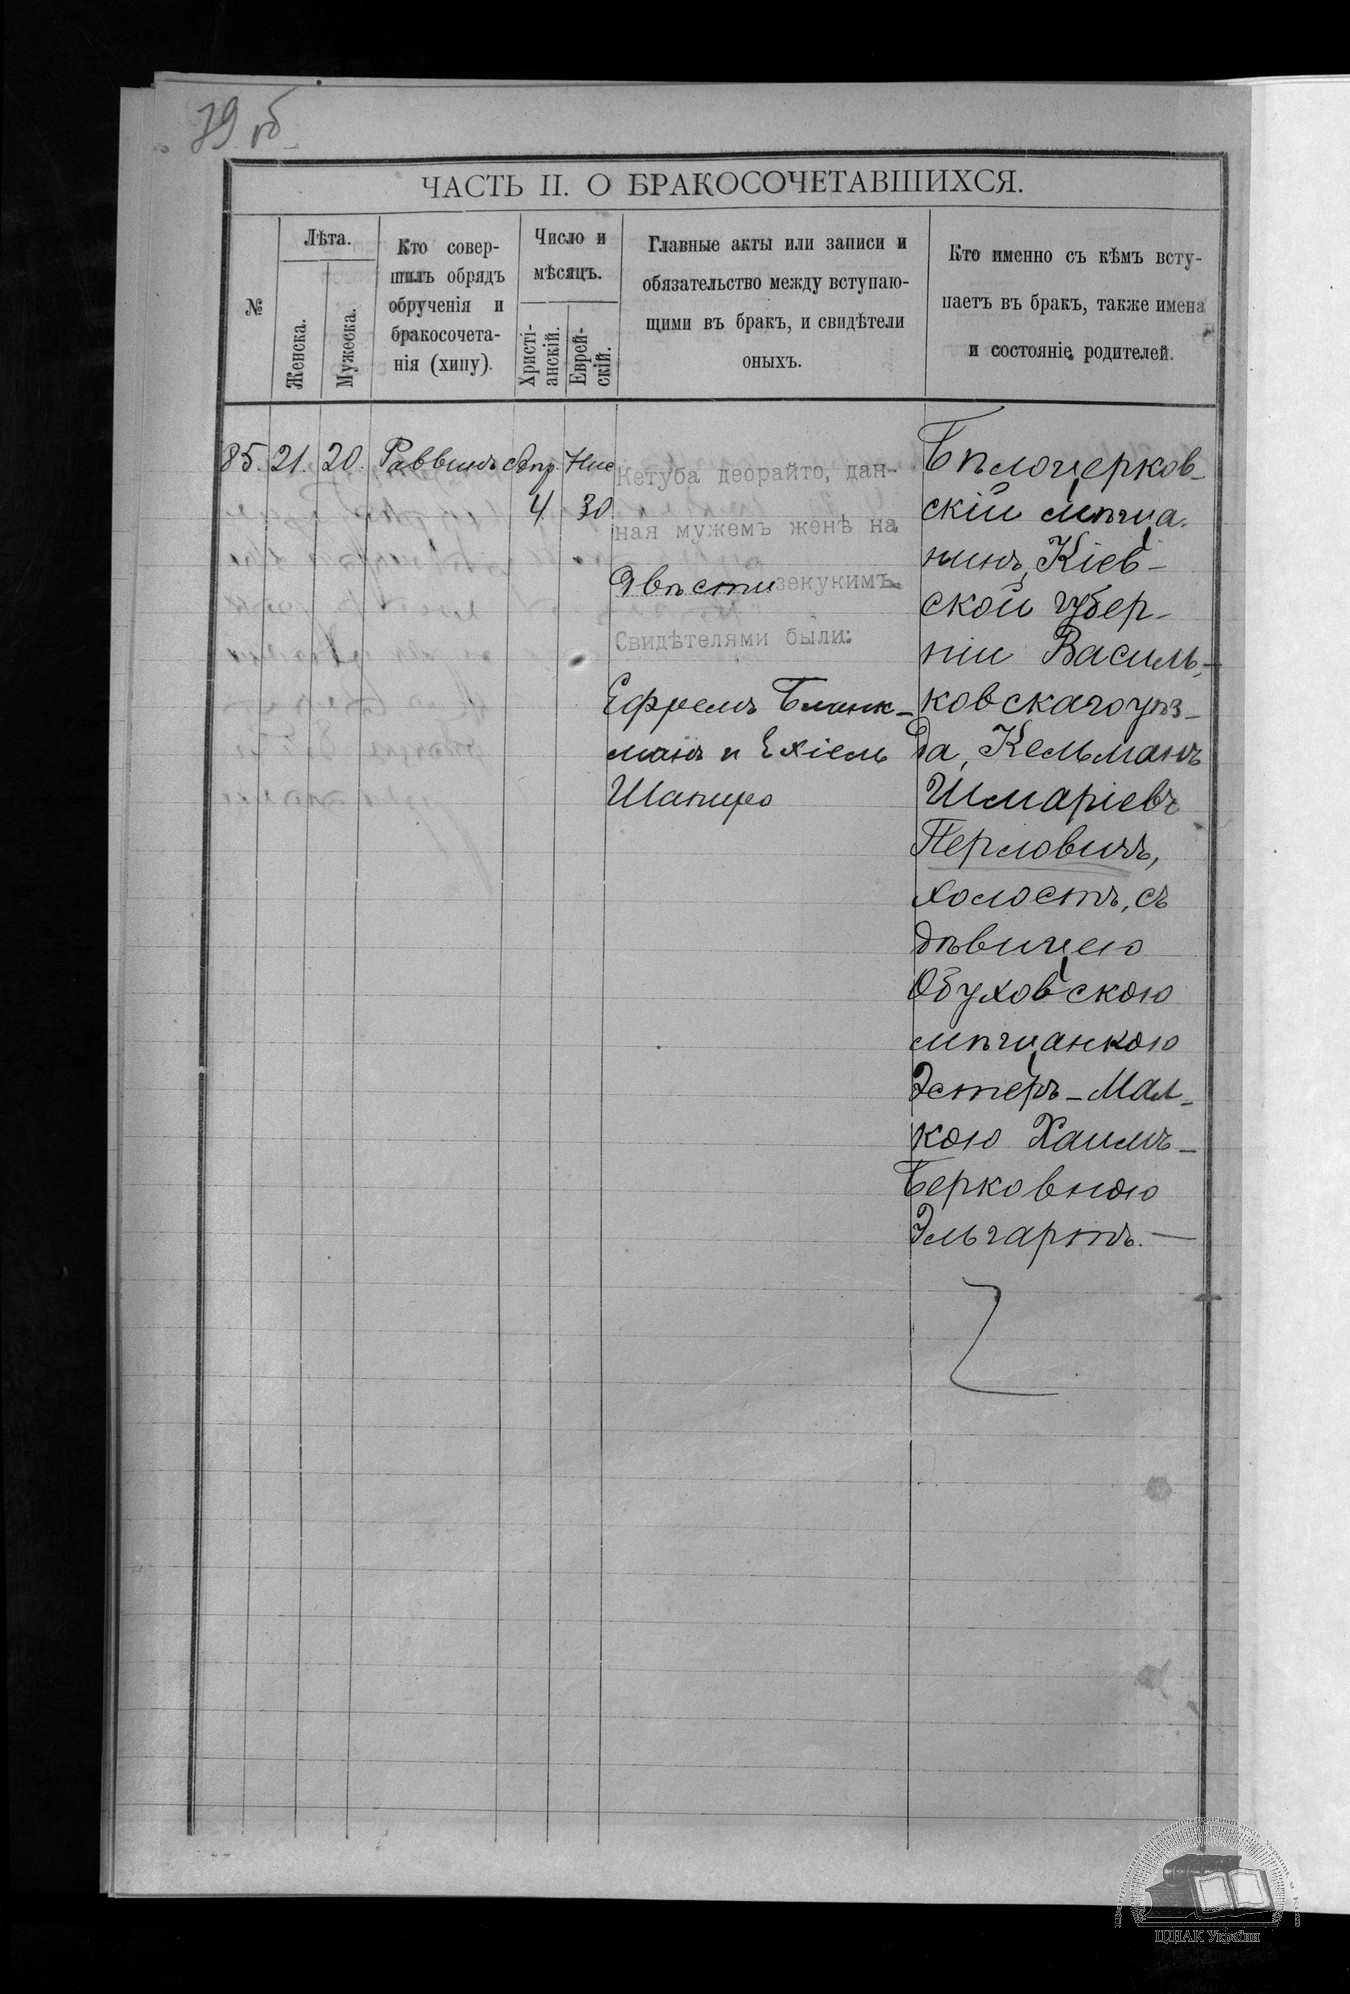 79 об
ЧАСТЬ II. О БРАКОСОЧЕТАВШИХСЯ.
№
Лѣта.
Женска.
Мужеска.
Кто совер-
шилъ обрядъ
обрученія и
бракосочета-
нія (хипу).
Число и
мѣсяцъ.
Христі-
анскій.
Еврей-
скій.
Главные акты или записи и
обязательство между вступаю-
щими въ бракъ, и свидѣтели
оныхъ.
Кто именно съ кѣмъ всту-
паетъ въ бракъ, также имена
и состояніе родителей.
85. 21. 20. Раввинъ Апр. Нис
4 30
Кетуба деорайто, дан-
ная мужемъ женѣ на
двѣсти зекукимъ.
Свидѣтелями были:
Ефремъ Бланк-
манъ и Ехіель
Шапиро
Бѣлоцерков-
скій мѣща-
нинъ, Кіев-
ской губер-
ніи Василь-
ковскаго уѣз-
да, Кельманъ
Шмаріевъ
Перловичъ,
холостъ, съ
дѣвицею
Обуховскою
мѣщанкою
Эстеръ-Мал-
кою Хаимъ-
Берковною
Эльгартъ.—
ЦДІАК України